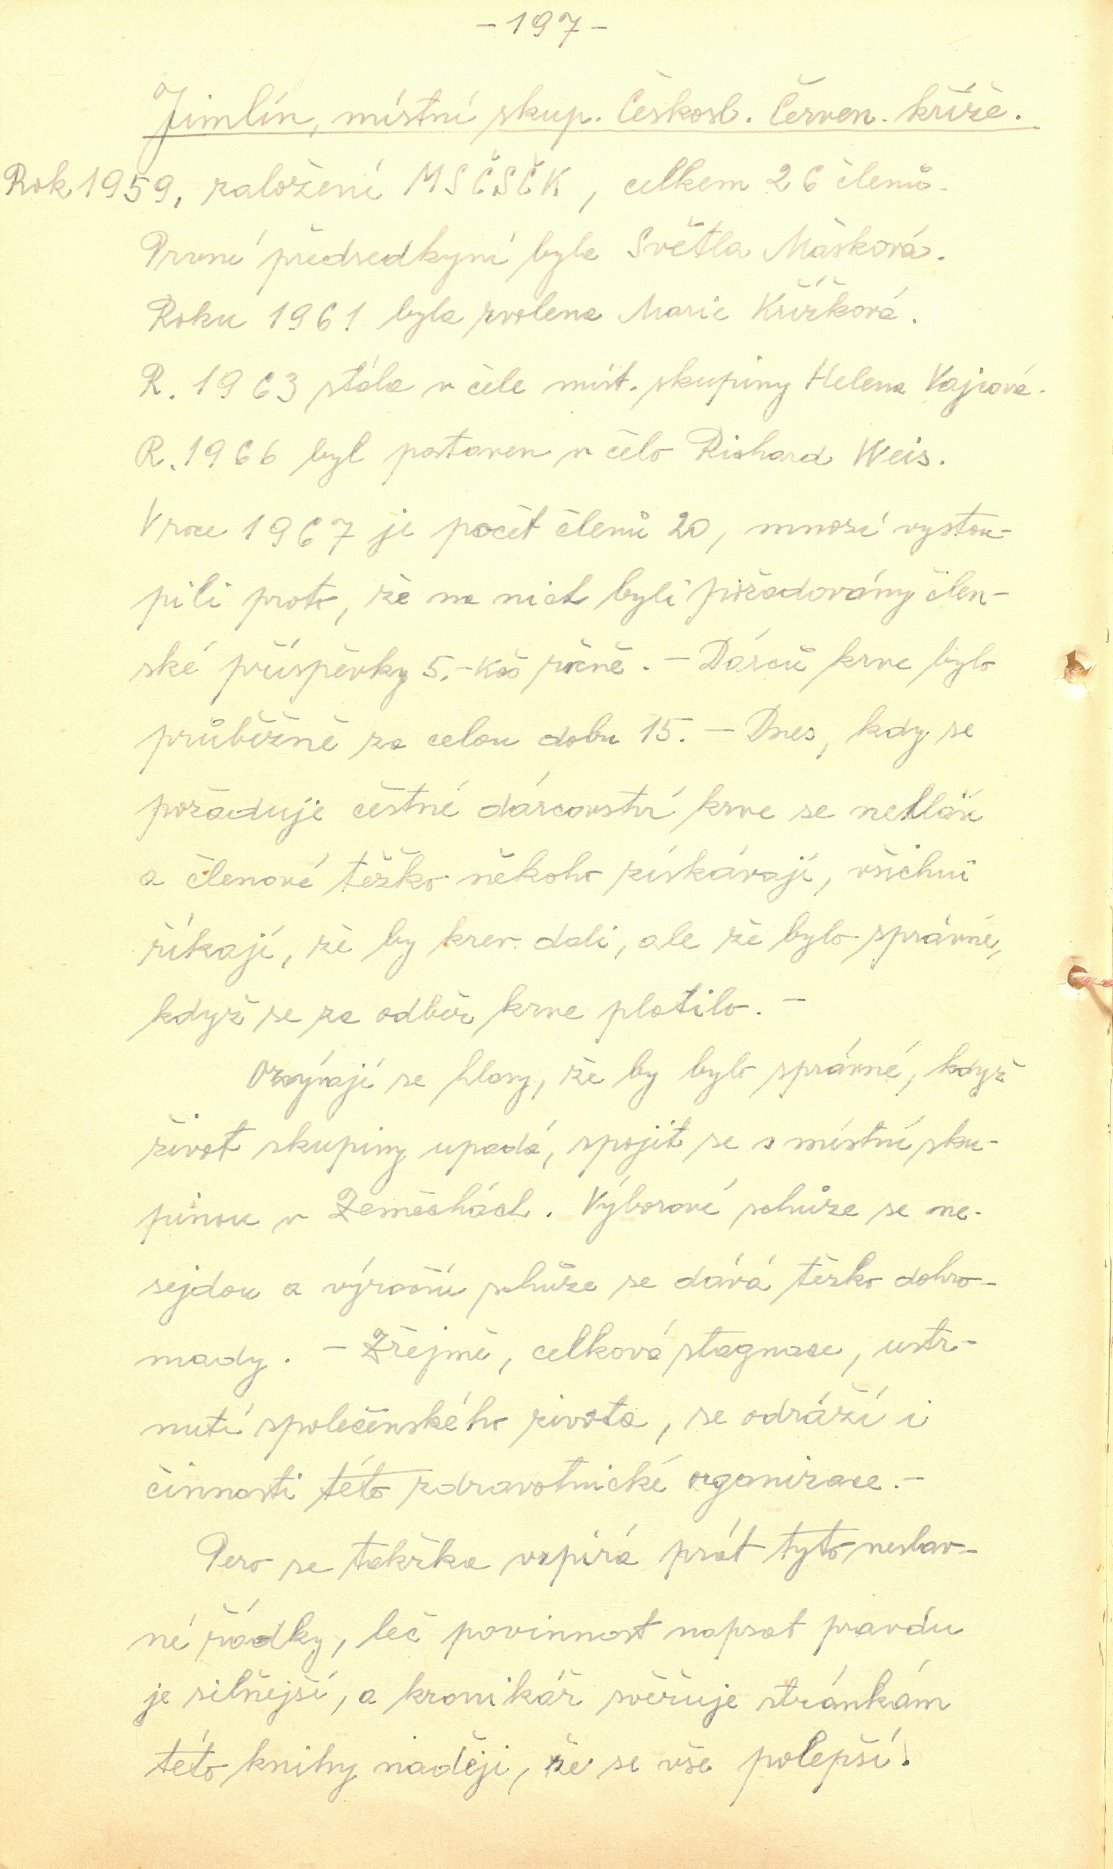 - 197 -
Jimlín, místní skup. Českosl. Červen. kříže.
Rok 1959, založení MSČSČK, celkem 26 členů.
První předsedkyní byla Světla Mašková.
Roku 1961 byla zvolena Marie Křížková.
R. 1963 stála v čele míst. skupiny Helena Vajcová.
R. 1966 byl postaven v čelo Richard Weis.
V roce 1967 je počet členů 20, mnozí vystou-
pili proto, že na nich byli požadovány člen-
ské příspěvky 5.- Kčs ročně. - Dárců krve bylo
průběžně za celou dobu 15. - Dnes, kdy se
požaduje čestné dárcovství krve se nehlásí
a členové těžko někoho získávají, všichni
říkají, že by krev dali, ale že bylo správné,
když se za odběr krve platilo. -
Ozývají se hlasy, že by bylo správné, když
život skupiny upadá, spojit se s místní sku-
pinou v Zeměchách. Výborové schůze se ne-
sejdou a výroční schůze se dává těžko dohro-
mady. - Zřejmě, celková stagnace, ustr-
nutí společenského života, se odráží i
činnosti této zdravotnické organizace. -
Pero se takřka vzpírá psát tyto neslav-
né řádky, leč povinnost napsat pravdu
je silnější, a kronikář svěřuje stránkám
této knihy naději, že se vše polepší.